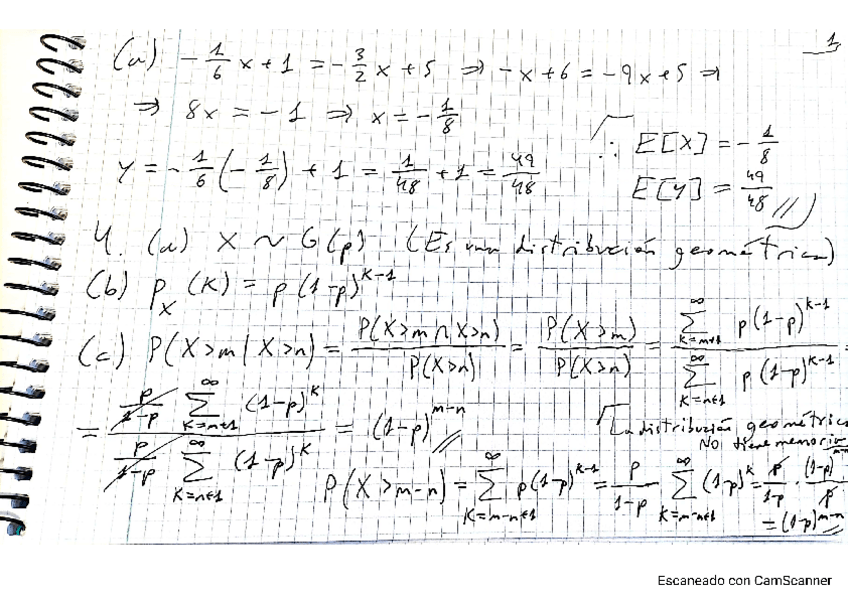 1
(a) -1/6 x + 1 = -3/2 x + 5 ⇒ -x + 6 = -9x + 5 ⇒
⇒ 8x = -1 ⇒ x = -1/8
y = -1/6 (-1/8) + 1 = 1/48 + 1 = 49/48
∴ E[X] = -1/8
E[Y] = 49/48 //
4. (a) X ~ G(p) (Es una distribución geométrica)
(b) p_X (k) = p(1-p)^{k-1}
(c) P(X>m | X>n) = P(X>m ∩ X>n) / P(X>n) = P(X>m) / P(X>n) = ∑_{k=m+1}^{∞} p(1-p)^{k-1} / ∑_{k=n+1}^{∞} p(1-p)^{k-1} =
= p/(1-p) ∑_{k=m+1}^{∞} (1-p)^k / p/(1-p) ∑_{k=n+1}^{∞} (1-p)^k = (1-p)^{m-n} //
La distribución geométrica
No tiene memoria
P(X>m-n) = ∑_{k=m-n+1}^{∞} p(1-p)^{k-1} = p/(1-p) ∑_{k=m-n+1}^{∞} (1-p)^k = p/(1-p) ·
= (1-p)^{m-n} //
Escaneado con CamScanner